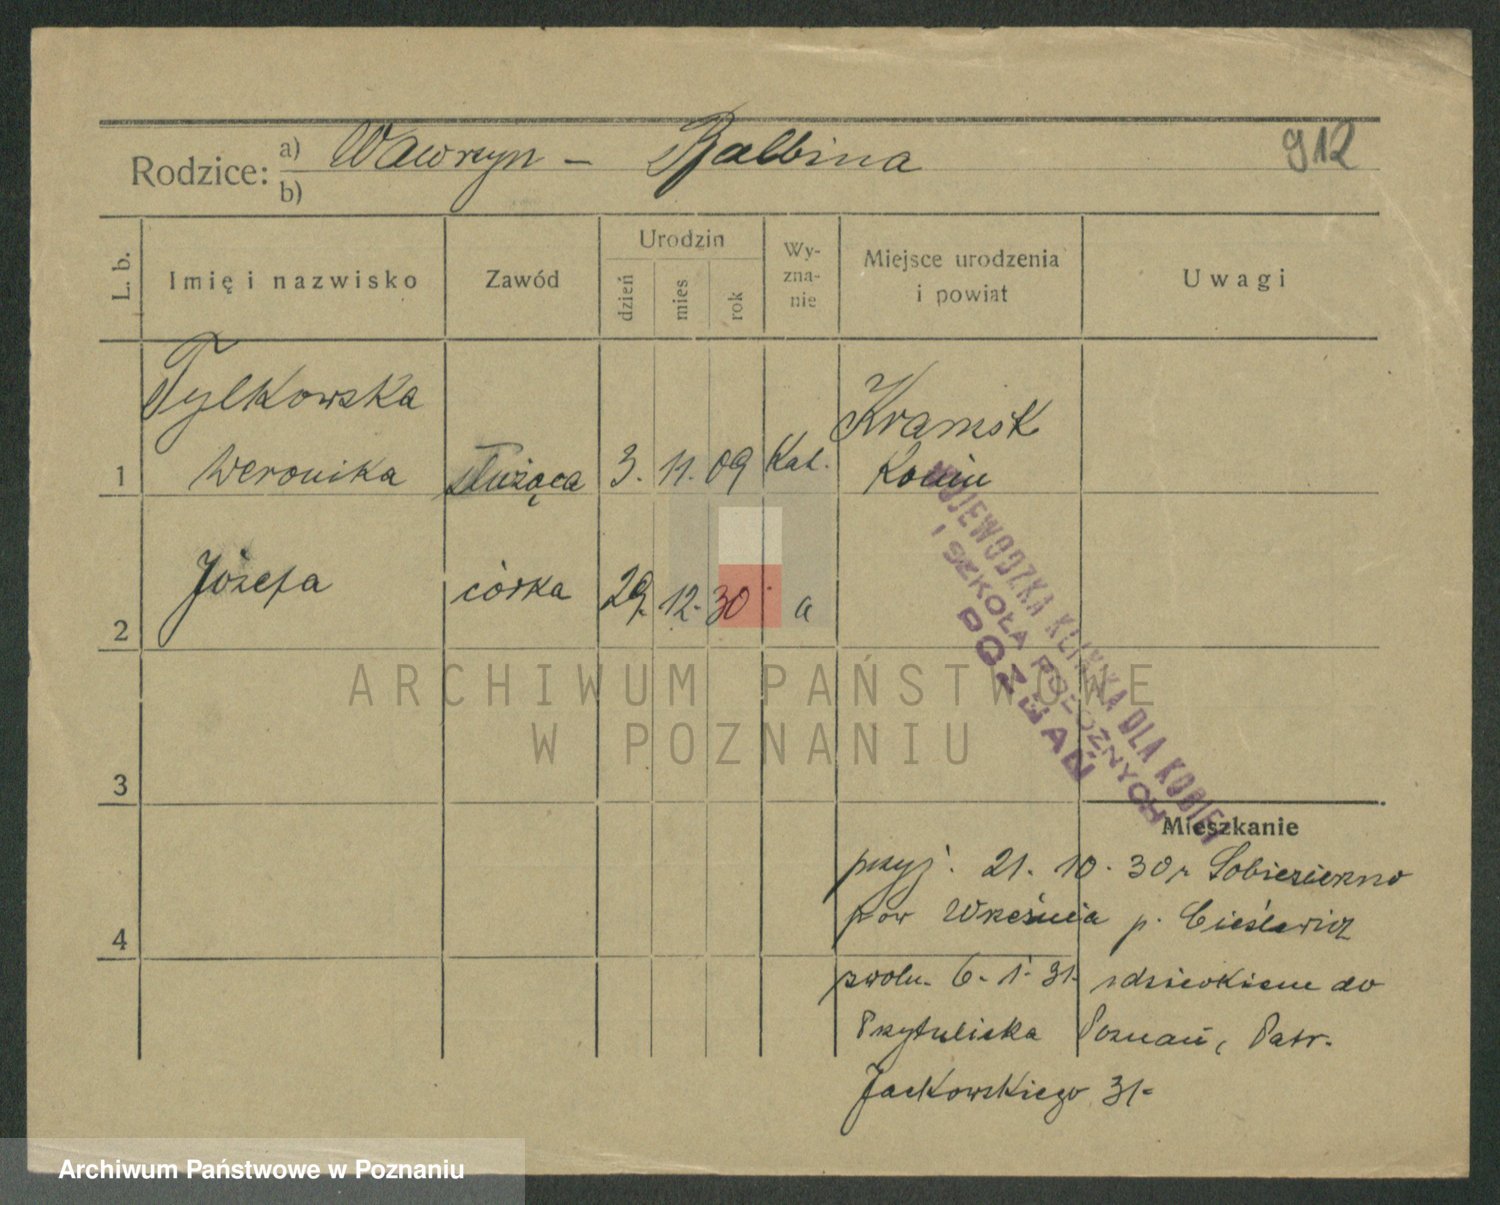 912
Rodzice: a) Wawrzyn - Balbina
b)
L. b. Imię i nazwisko Zawód Urodzin dzień mies rok Wy-zna-nie Miejsce urodzenia i powiat Uwagi
Tylkowska Kramsk
1 Weronika służąca 3. 11. 09 Kat. Konin
2 Józefa córka 29. 12. 30 a
WOJEWÓDZKA KLINIKA DLA KOBIET
I SZKOŁA POŁOŻNYCH
POZNAŃ
ARCHIWUM PAŃSTWOWE
W POZNANIU
3
Mieszkanie
przyj. 21. 10. 30r Sobiesierno
4 pow Września p. Cieślewicz
zwoln. 6. 1. 31. z dzieckiem do
Przytuliska Poznań, Patr.
Jackowskiego 31-
Archiwum Państwowe w Poznaniu